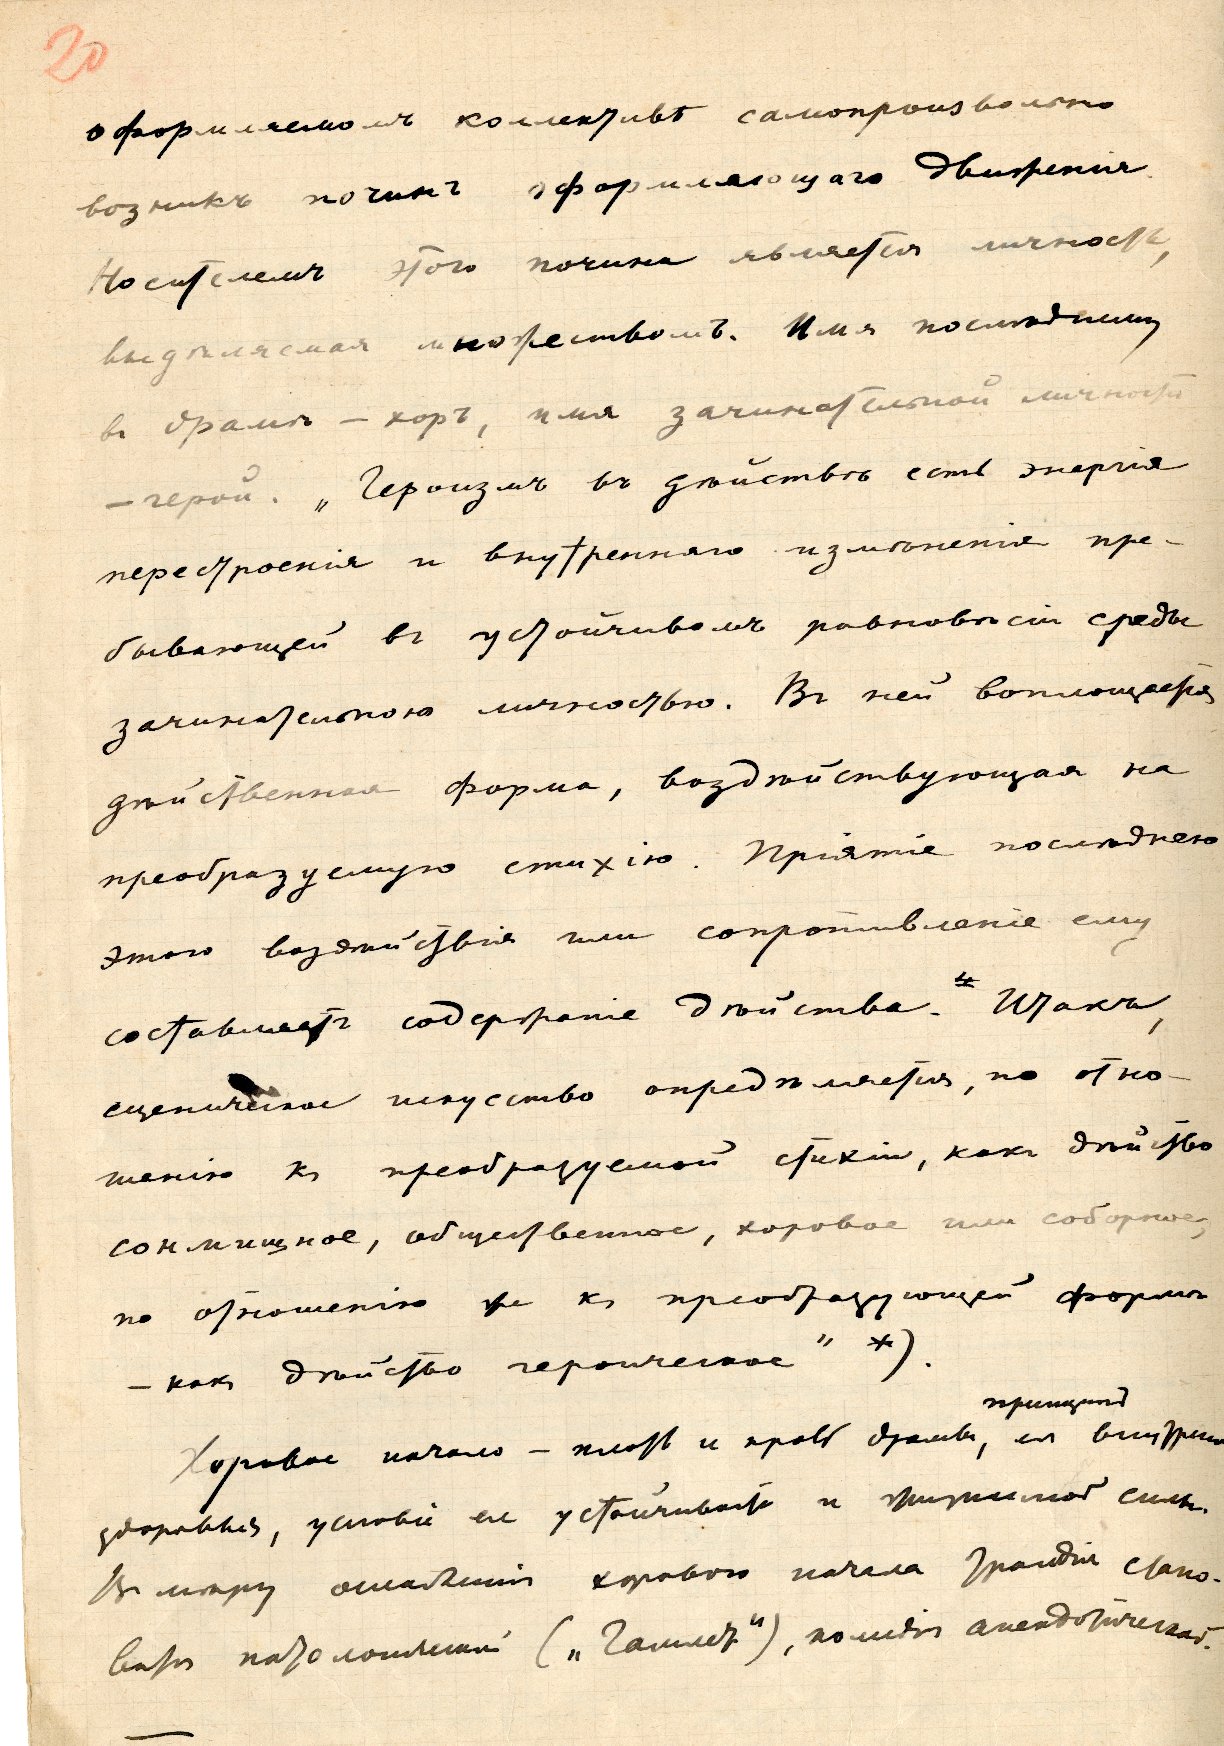 20
оформляемомъ коллективѣ самопроизвольно
возникъ починъ оформляющаго движенія.
Носителемъ этого почина является личность,
выдѣляемая множествомъ. Имя послѣднему
въ драмѣ – хоръ, имя зачинательной личности
– герой. „Героизмъ въ дѣйствѣ есть энергія
перестроенія и внутренняго измѣненія пре-
бывающей въ устойчивомъ равновѣсіи среды
зачинательною личностью. Въ ней воплощается
дѣйственная форма, воздѣйствующая на
преобразуемую стихію. Пріятіе послѣднею
этого воздѣйствія или сопротивленіе ему
составляетъ содержаніе дѣйства. Итакъ,
сценическое искусство опредѣляется, по отно-
шенію къ преобразуемой стихіи, какъ дѣйство
сонмищное, общественное, хоровое или соборное,
по отношенію же къ преобразующей формѣ
– какъ дѣйство героическое" *).
принципъ
Хоровое начало – плоть и кровь драмы, ея внутренн
здоровья, условіе ея устойчивости и жизненной силы.
Въ мѣру ослабленія хорового начала трагедія стано-
вится патологической („Гамлетъ"), комедія анекдотической.